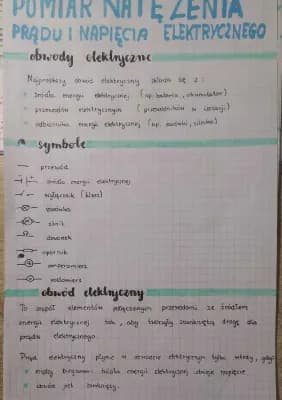 POMIAR NATĘŻENIA
PRĄDU I NAPIĘCIA ELEKTRYCZNEGO
obwody elektryczne
Najprostszy obwód elektryczny składa się z:
źródła energii elektrycznej (np. bateria, akumulator)
przewodów elektrycznych (przewodników w izolacji)
odbiornika energii elektrycznej (np. żarówki, silnika)
symbole
przewód
źródło energii elektrycznej
wyłącznik (klucz)
żarówka
M silnik
dzwonek
opornik
A amperomierz
V woltomierz
obwód elektryczny
To zespół elementów połączonych przewodami ze źródłem
energii elektrycznej tak, aby tworzyły zamkniętą drogę dla
prądu elektrycznego.
Prąd elektryczny płynie w obwodzie elektrycznym tylko wtedy, gdy:
między biegunami źródła energii elektrycznej istnieje napięcie
obwód jest zamknięty.